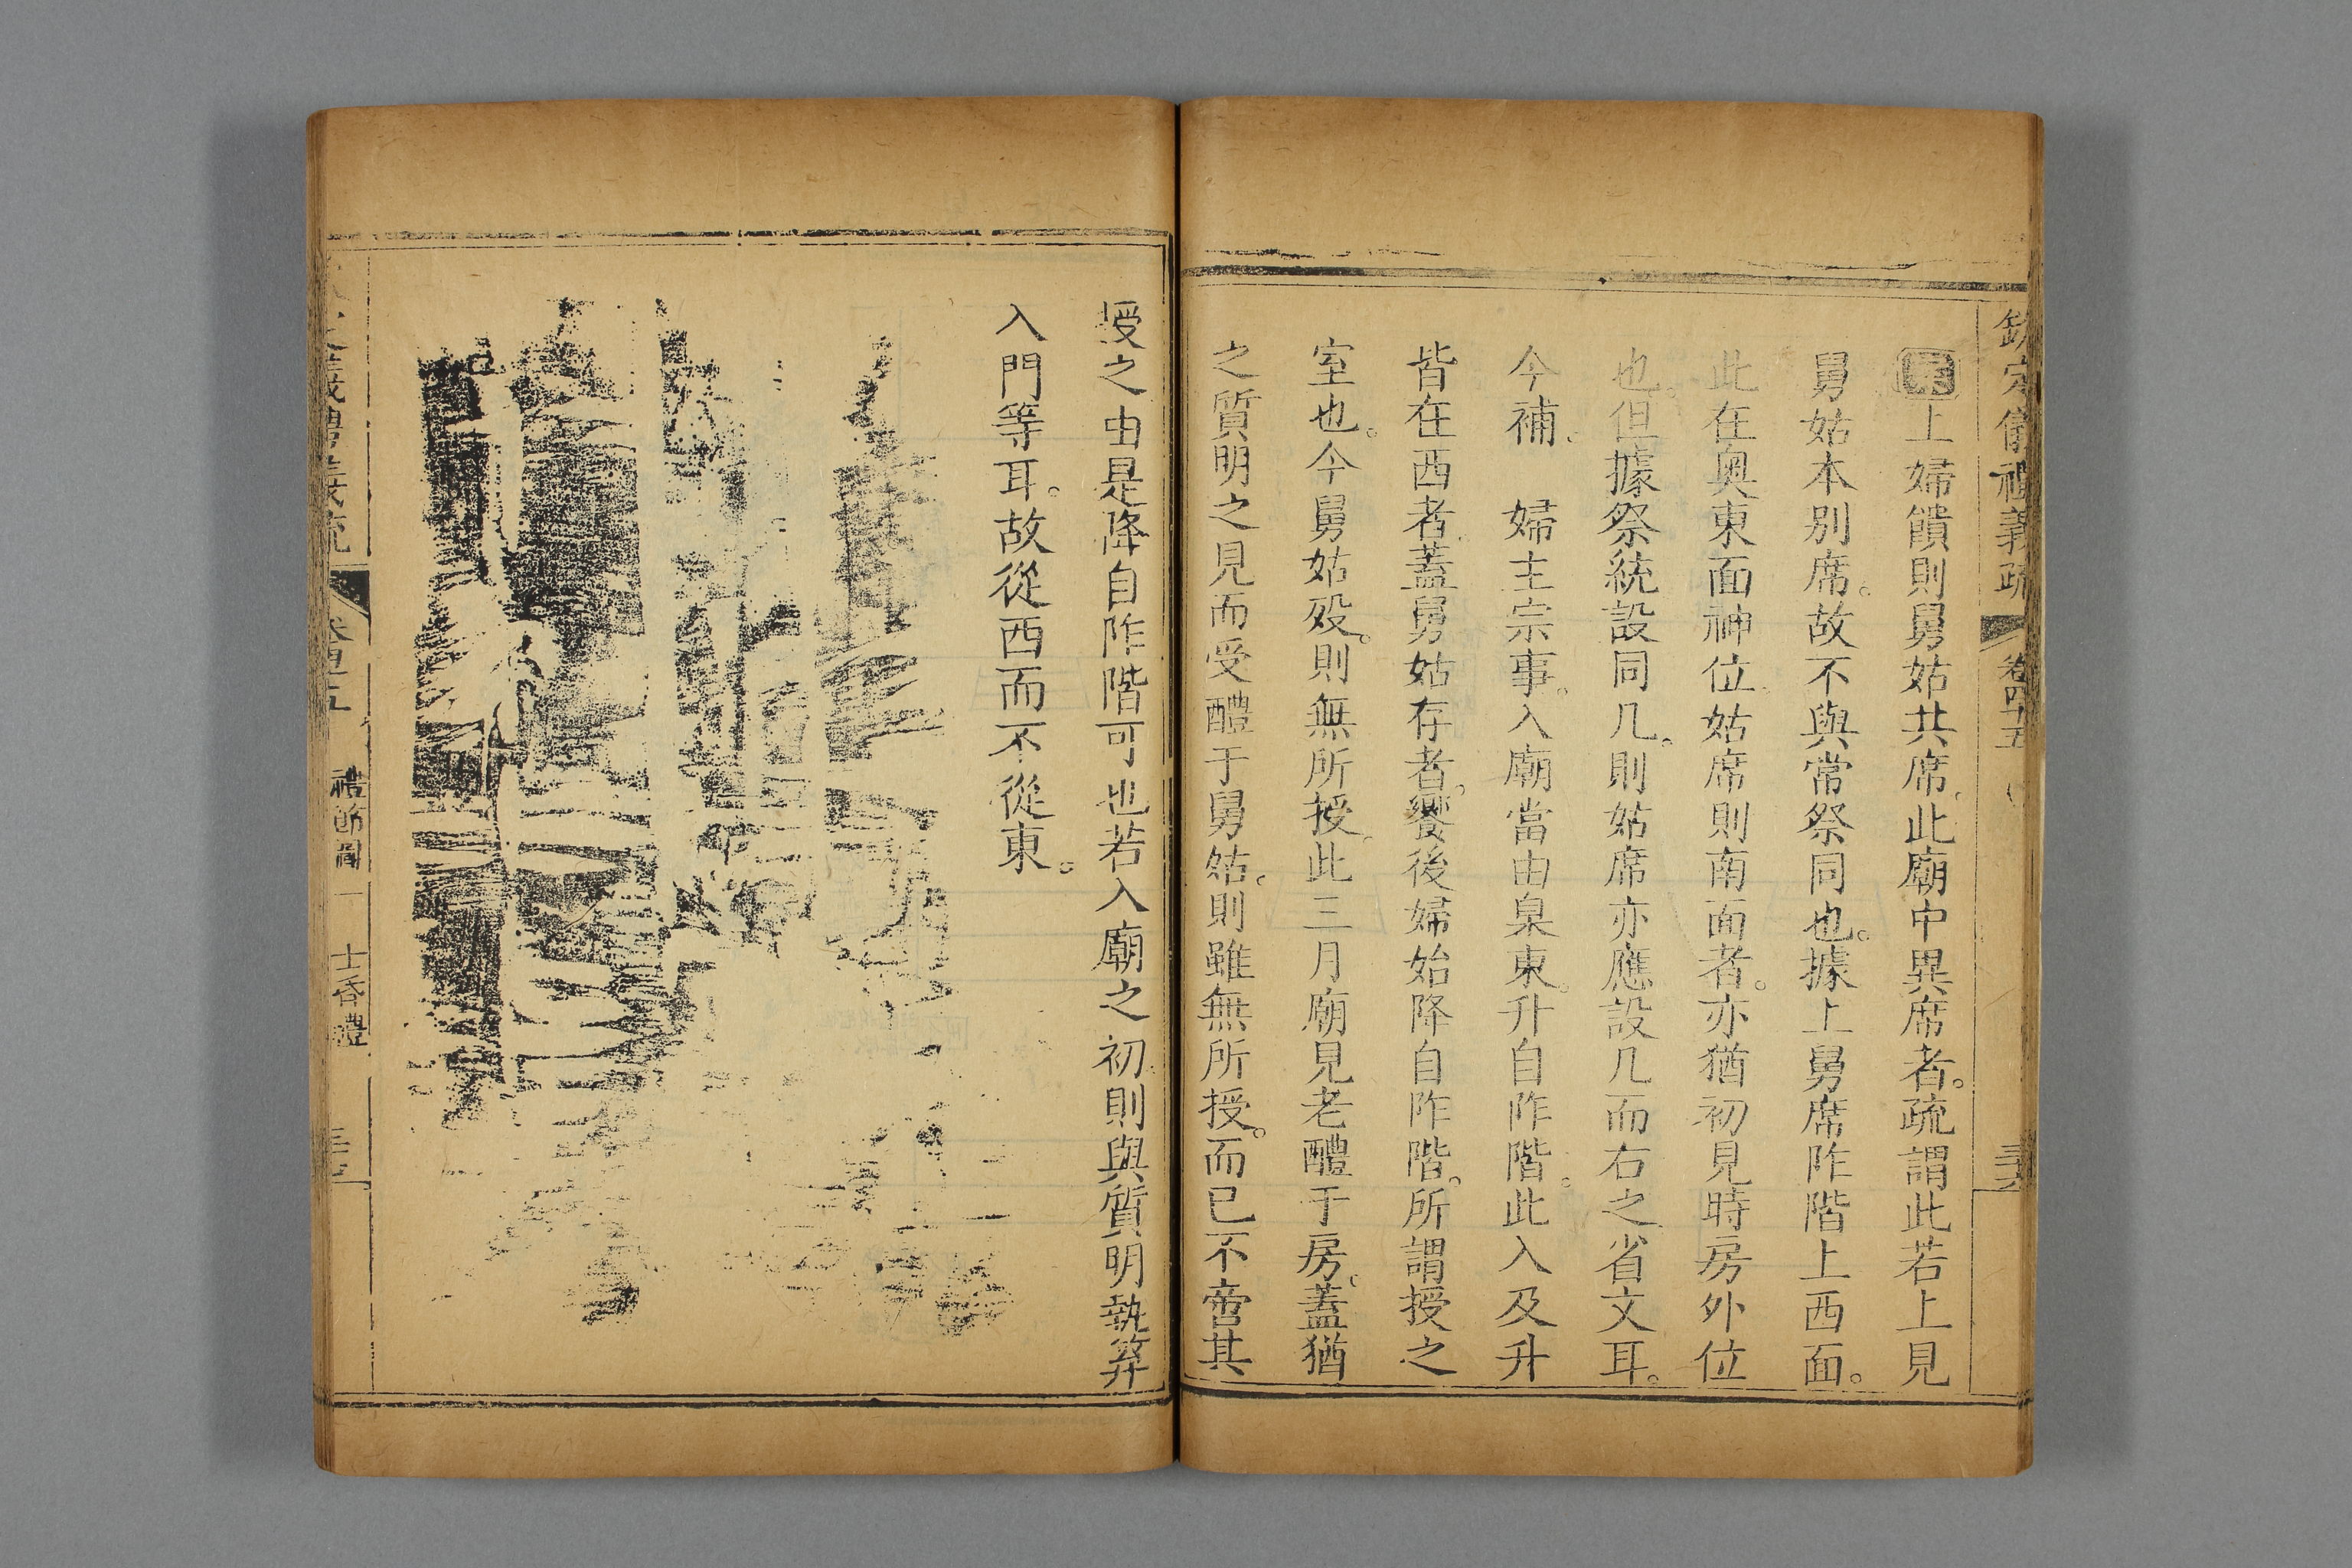 欽定儀禮義疏 卷四十五
上婦饋則舅姑共席此廟中異席者。疏謂此若上見
舅姑本別席。故不與常祭同也。據上舅席阼階上西面。
此在奥東面神位姑席則南面者。亦猶初見時房外位
也。但據祭統設同几。則姑席亦應設几而右之省文耳。
今補。 婦主宗事。入廟當由臬東。升自阼階。此入及升
皆在西者蓋舅姑存者。饗後婦始降自阼階。所謂授之
室也。今舅姑歿。則無所授。此三月廟見老醴于房。蓋猶
之質明之見而受醴于舅姑。則雖無所授。而已不啻其
授之由是降自阼階可也若入廟之初則與質明執笲
入門等耳。故從西而不從東。
禮節圖一 士昏禮